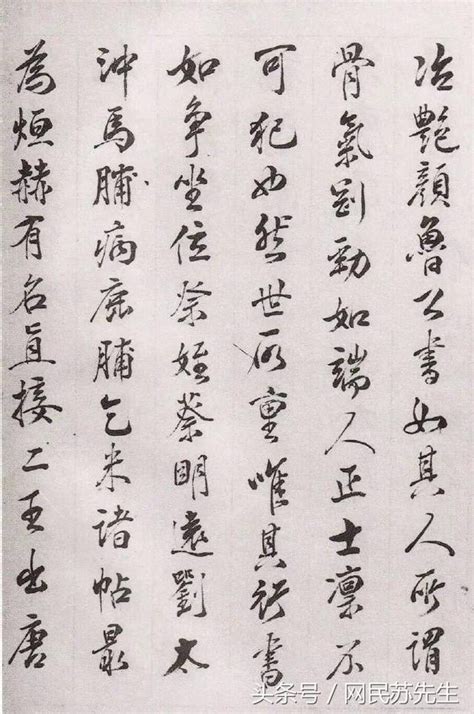 冶艷顏魯公書如其人所謂
骨氣剛勁如端人正士凛不
可犯也然世所重唯其行書
如争坐位祭姪蔡明遠劉太
沖馬脯病鹿脯乞米諸帖最
為烜赫有名直接二王出唐
头条号 / 网民苏先生